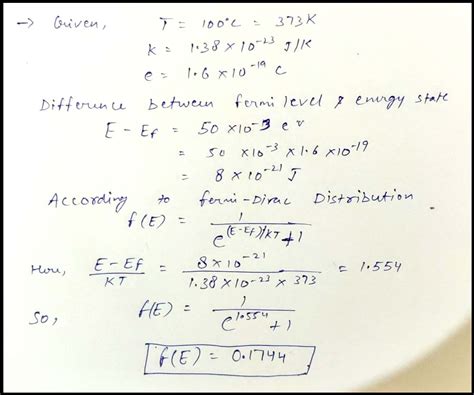 → Given, T = 100°C = 373K
K = 1.38 × 10⁻²³ J/K
e = 1.6 × 10⁻¹⁹ C
Difference between fermi level & energy state
E - Ef = 50 × 10⁻³ eV
= 50 × 10⁻³ × 1.6 × 10⁻¹⁹
= 8 × 10⁻²¹ J
According to fermi-Dirac Distribution
f(E) = 1 / (e^((E-Ef)/KT) + 1)
Here, (E - Ef) / KT = (8 × 10⁻²¹) / (1.38 × 10⁻²³ × 373) = 1.554
So, f(E) = 1 / (e^(1.554) + 1)
f(E) = 0.1744